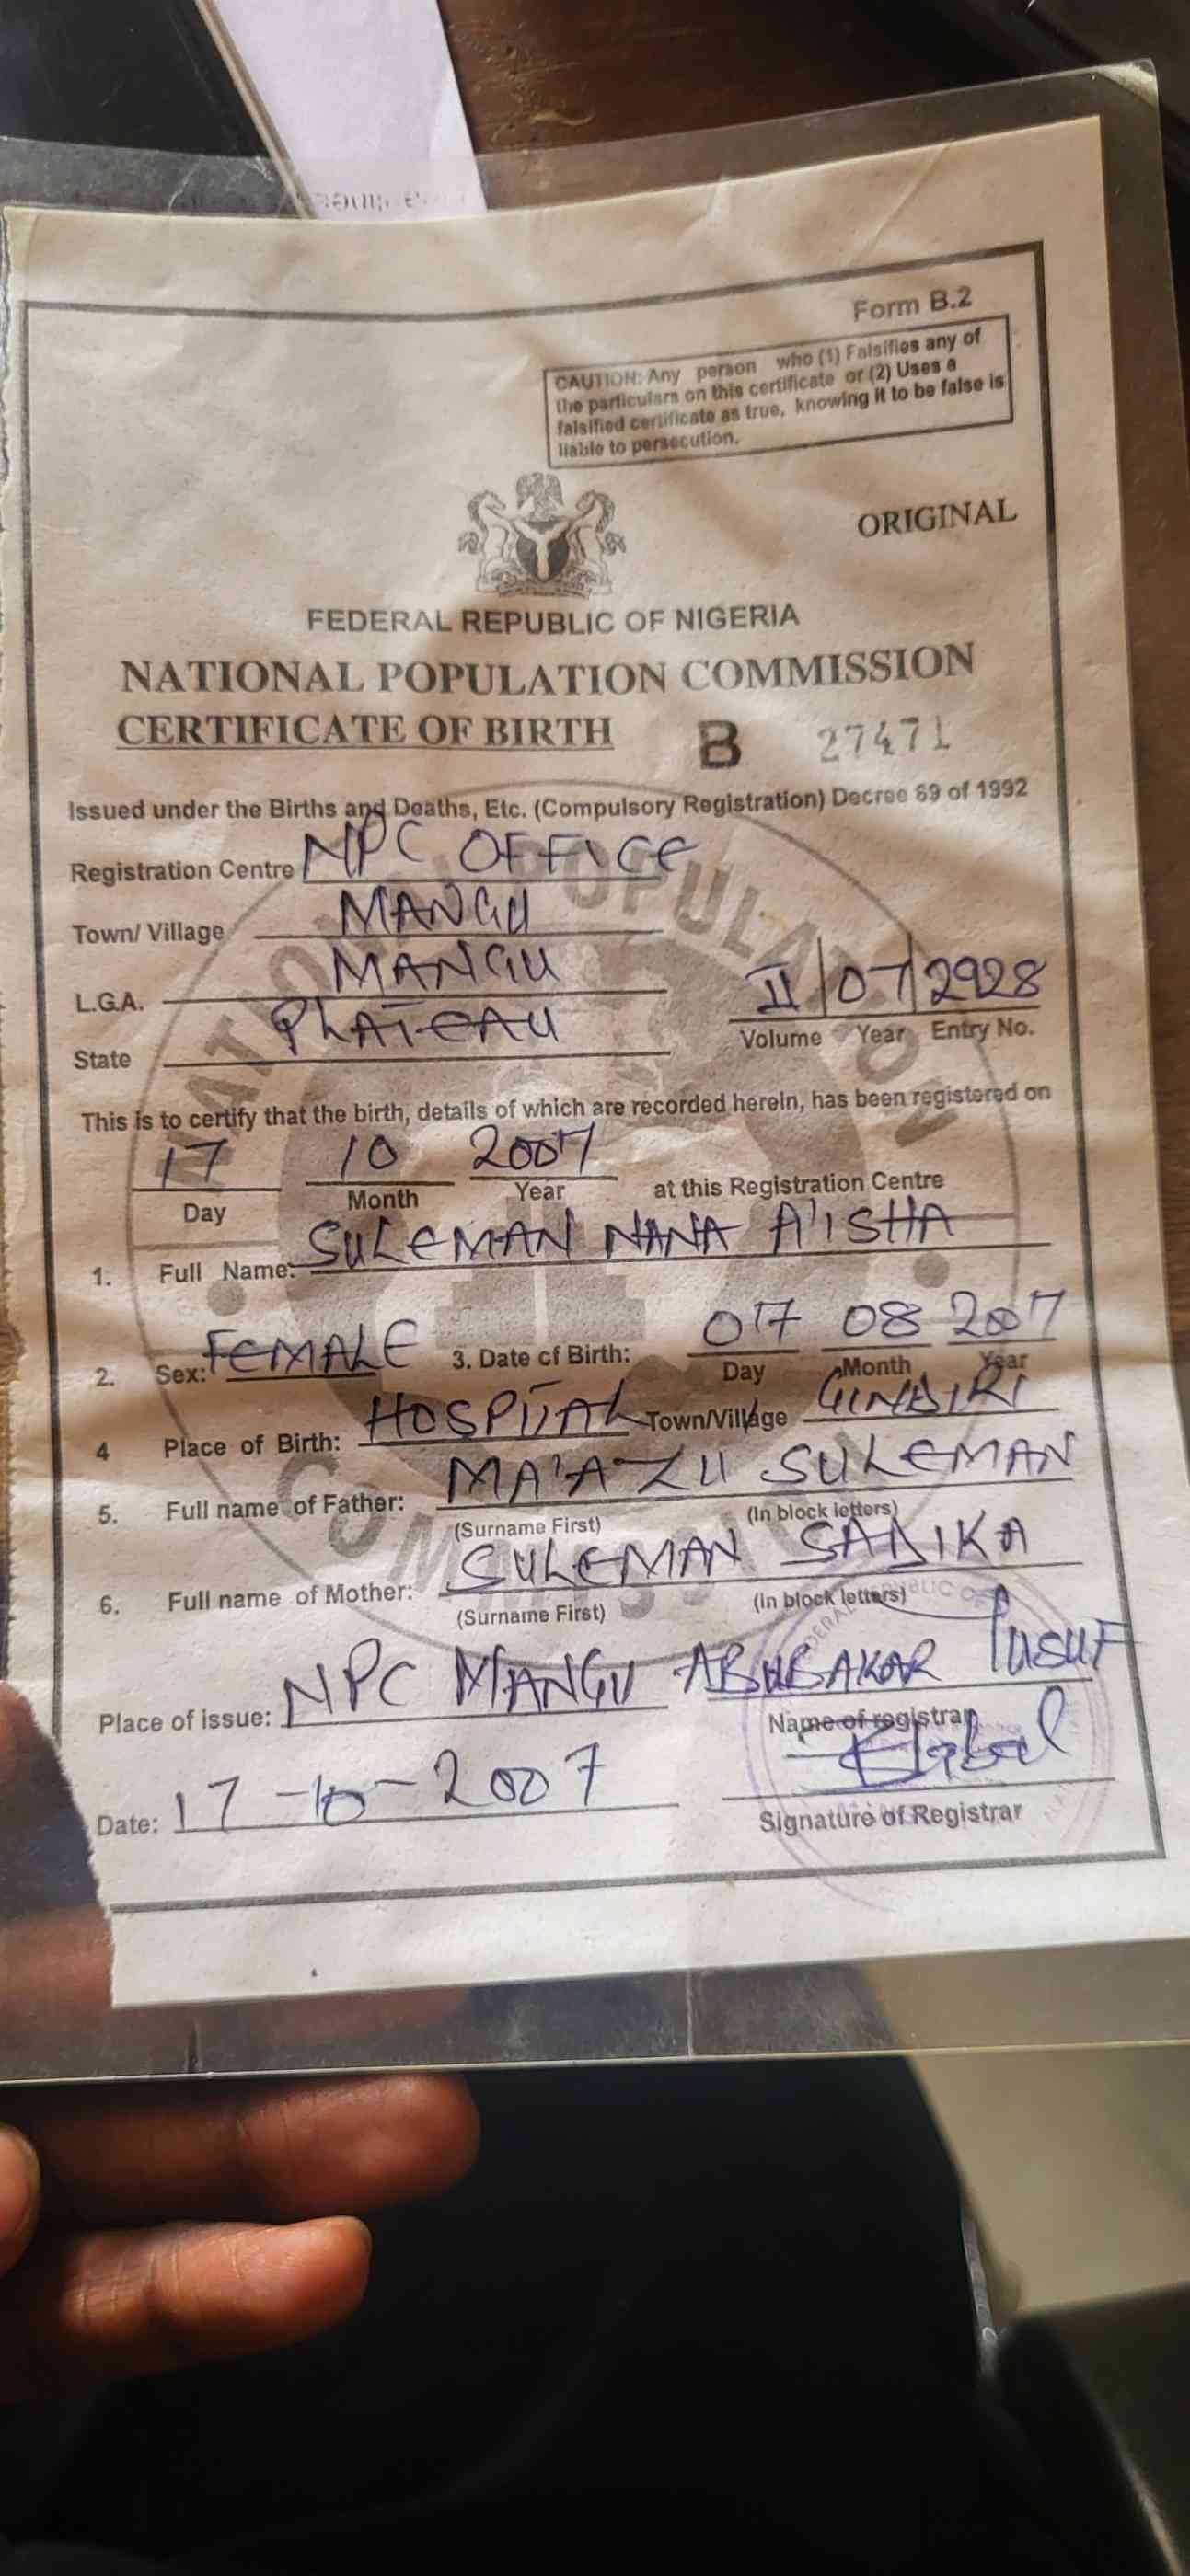 Form B.2
CAUTION: Any person who (1) Falsifies any of
the particulars on this certificate or (2) Uses a
falsified certificate as true, knowing it to be false is
liable to persecution.
ORIGINAL
FEDERAL REPUBLIC OF NIGERIA
NATIONAL POPULATION COMMISSION
CERTIFICATE OF BIRTH B 27471
Issued under the Births and Deaths, Etc. (Compulsory Registration) Decree 69 of 1992
Registration Centre NPC OFFICE
Town/ Village MANGU
L.G.A. MANGU
II/07/2928
Volume Year Entry No.
State PLATEAU
This is to certify that the birth, details of which are recorded herein, has been registered on
17 10 2007
Day Month Year at this Registration Centre
1. Full Name: SULEMAN NANA A'ISHA
2. Sex: FEMALE 3. Date of Birth: 07 08 2007
Day Month Year
4 Place of Birth: HOSPITAL Town/Village GINDIRI
5. Full name of Father: MA'AZU SULEMAN
(Surname First) (In block letters)
6. Full name of Mother: SULEMAN SADIKA
(Surname First) (In block letters)
Place of issue: NPC MANGU ABUBAKAR YUSUF
Name of registrar
Date: 17-10-2007
Signature of Registrar
NATIONAL POPULATION COMMISSION